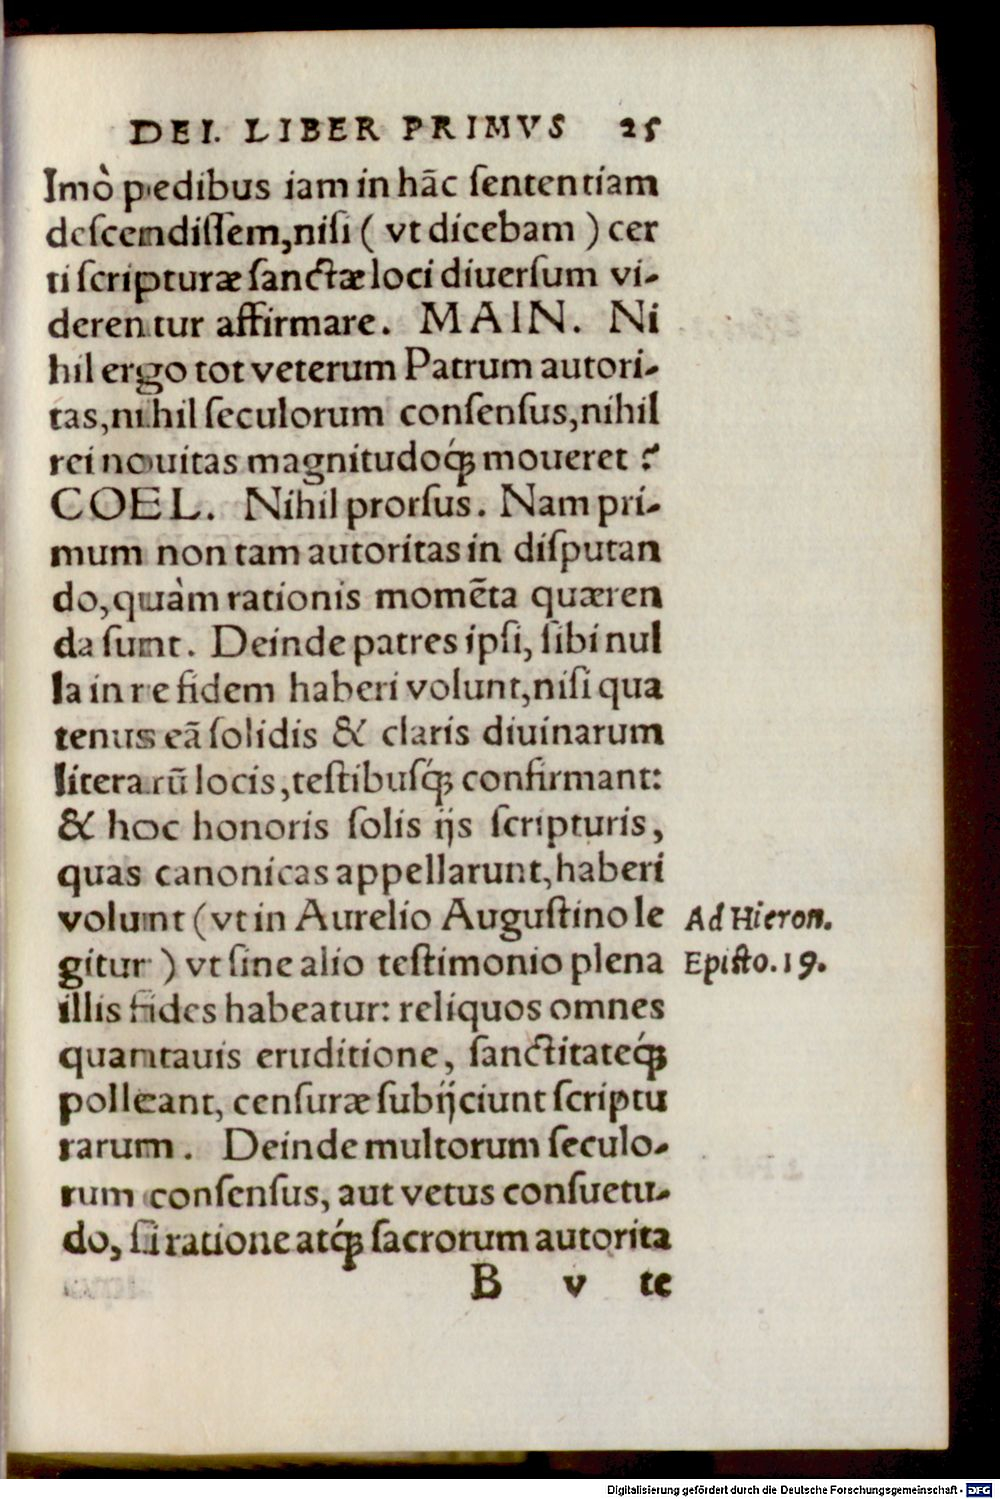 DEI. LIBER PRIMVS 25
Imò pedibus iam in hāc ſententiam
deſcendiſſem,niſi ( vt dicebam ) cer
ti ſcripturæ ſanctæ loci diuerſum vi-
derentur affirmare. MAIN. Ni
hil ergo tot veterum Patrum autori-
tas,nihil ſeculorum conſenſus,nihil
rei nouitas magnitudoq́; moueret ?
COEL. Nihil prorſus. Nam pri-
mum non tam autoritas in diſputan
do,quàm rationis momēta quæren
da ſunt. Deinde patres ipſi, ſibi nul
la in re fidem haberi volunt,niſi qua
tenus eā ſolidis & claris diuinarum
litera rū locis,teſtibuſq́; confirmant:
& hoc honoris ſolis ijs ſcripturis,
quas canonicas appellarunt,haberi
volunt (vt in Aurelio Auguſtino le
gitur ) vt ſine alio teſtimonio plena
illis fides habeatur: reliquos omnes
quantauis eruditione, ſanctitateq́;
polleant, cenſuræ ſubijciunt ſcriptu
rarum. Deinde multorum ſeculo-
rum conſenſus, aut vetus conſuetu-
do, ſi ratione atq́; ſacrorum autorita
B v te
Ad Hieron.
Epiſto.19.
Digitalisierung gefördert durch die Deutsche Forschungsgemeinschaft - DFG